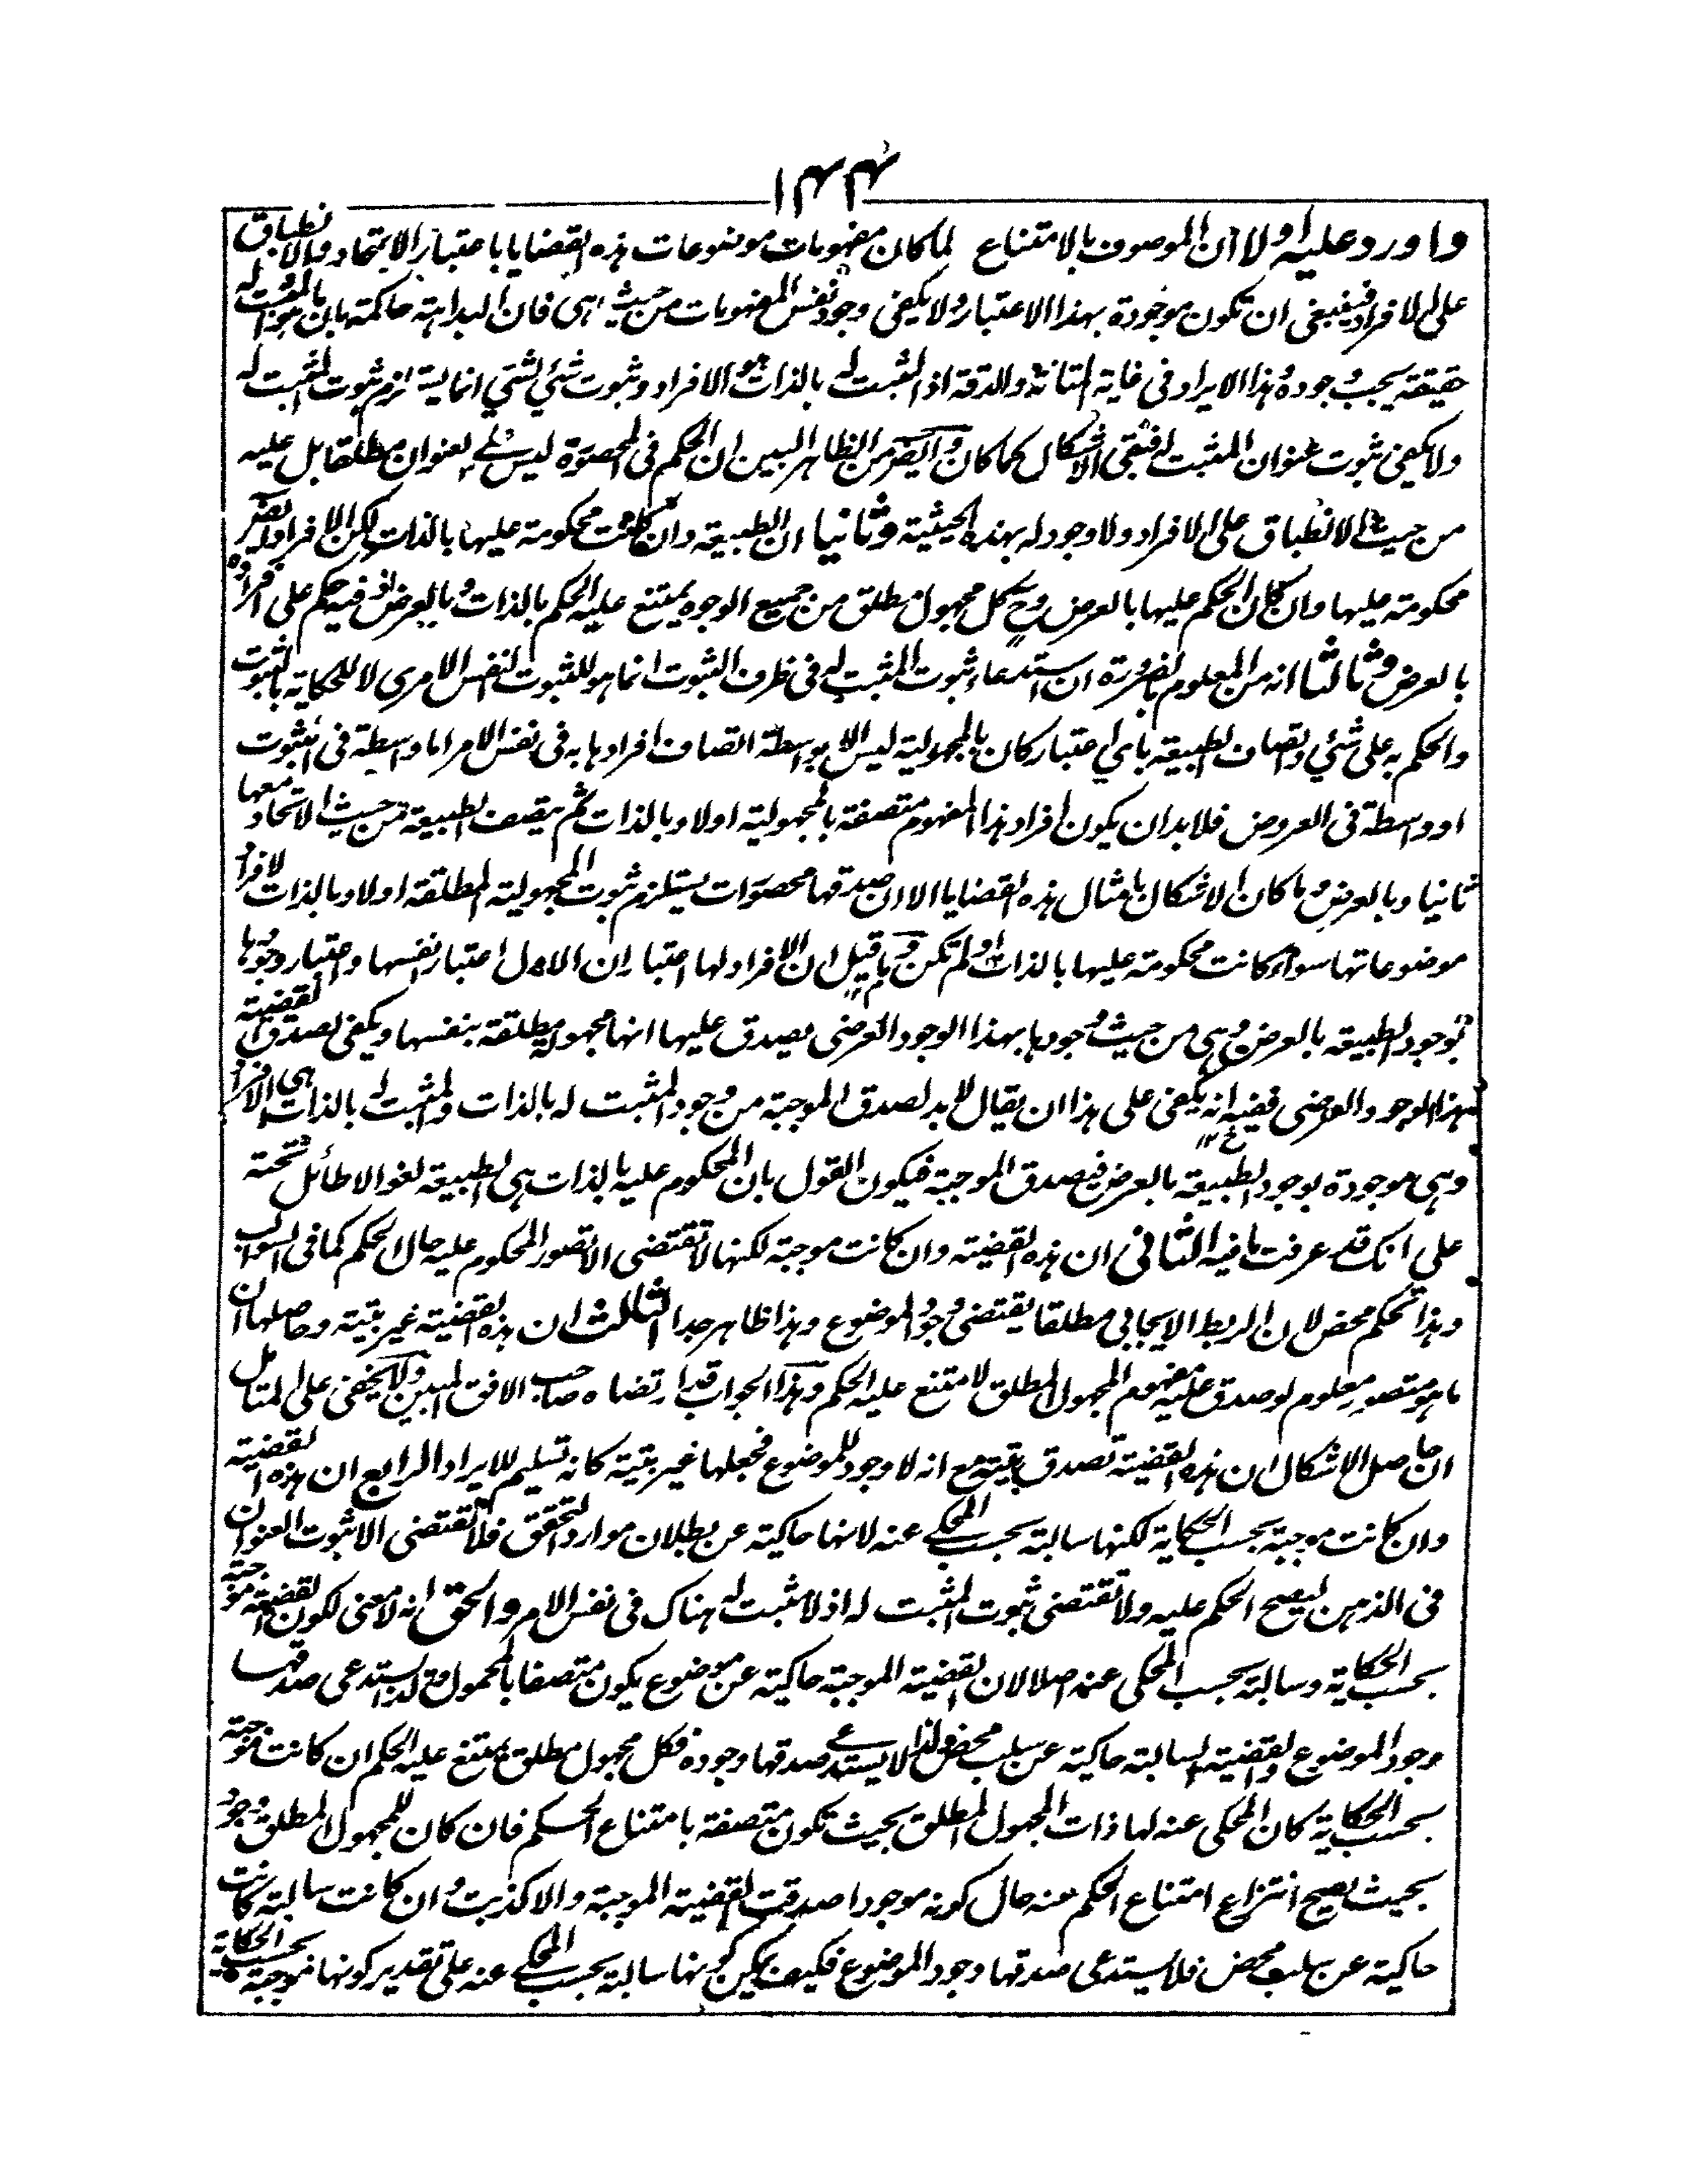 ١٤٤
واورد عليه اولا ان الموصوف بالامتناع لما كان مفهومات موضوعات هذه القضايا باعتبار الاتحاد والانطباق
على الافراد فينبغى ان تكون موجودة بهذا الاعتبار ولا يكفى وجود نفس المفهومات من حيث هى فان البداهة حاكمة بان المثبت له
حقيقة يجب وجوده وهذا الايراد فى غاية المتانة والدقة اذ المثبت له بالذات هو الافراد وثبوت شئ لشئ انما يستلزم ثبوت المثبت له
ولا يكفى ثبوت عنوان المثبت له فبقى الاشكال كما كان وايضا من الظاهر البين ان الحكم فى المحصورة ليس على العنوان مطلقا بل عليه
من حيث الانطباق على الافراد ولا وجود له بهذه الحيثية وثانيا ان الطبيعة وان كانت محكومة عليها بالذات لكن الافراد ايضا
محكومة عليها وان كان الحكم عليها بالعرض وح كل مجهول مطلق من جميع الوجوه يمتنع عليه الحكم بالذات وبالعرض ففيه حكم على افراده
بالعرض وثالثا انه من المعلوم بالضرورة ان استدعاء ثبوت المثبت له فى ظرف الثبوت انما هو للثبوت النفس الامرى لا للحكاية بالثبوت
والحكم به على شئ واتصاف الطبيعة باى اعتبار كان بالمجهولية ليس الا بواسطة اتصاف افرادها به فى نفس الامر اما واسطة فى الثبوت
او واسطة فى العروض فلا بد ان يكون افراد هذا المفهوم متصفة بالمجهولية اولا وبالذات ثم يتصف الطبيعة من حيث الاتحاد معها
ثانيا وبالعرض وما كان الاشكال بامثال هذه القضايا الا ان صدقها محصورات يستلزم ثبوت المجهولية المطلقة اولا وبالذات لافراد
موضوعاتها سواء كانت محكومة عليها بالذات او لم تكن وما قيل ان الافراد لها اعتباران الاول اعتبار نفسها واعتبار وجودها
بوجود الطبيعة بالعرض وهى من حيث وجودها بهذا الوجود العرضى يصدق عليها انها مجهولة مطلقة بنفسها ويكفى لصدق القضية
بهذا الوجود العرضى ففيه انه يكفى على هذا ان يقال لا بد لصدق الموجبة من وجود المثبت له بالذات والمثبت له بالذات هى الافراد
وهى موجودة بوجود الطبيعة بالعرض فيصدق الموجبة فيكون القول بان المحكوم عليه بالذات هى الطبيعة لغوا لا طائل تحته
على انك قد عرفت ما فيه الثانى ان هذه القضية وان كانت موجبة لكنها لا تقتضى الا تصور المحكوم عليه حال الحكم كما فى السوالب
وهذا تحكم محض لان الربط الايجابى مطلقا يقتضى وجود الموضوع وهذا ظاهر جدا الثالث ان هذه القضية غير بتية وحاصلها ان
ما هو متصور معلوم لو صدق عليه مفهوم المجهول المطلق لامتنع عليه الحكم وهذا الجواب قد ارتضاه صاحب الافق المبين ولا يخفى على المتامل
ان حاصل الاشكال ان هذه القضية تصدق بتية مع انه لا وجود للموضوع فجعلها غير بتية كانه تسليم للايراد الرابع ان هذه القضية
وان كانت موجبة بحسب الحكاية لكنها سالبة بحسب المحكى عنه لانها حاكية عن بطلان موارد التحقق فلا تقتضى الا ثبوت العنوان
فى الذهن ليصح الحكم عليه ولا تقتضى ثبوت المثبت له اذ لا مثبت له هناك فى نفس الامر والحق انه لا معنى لكون القضية موجبة
بحسب الحكاية وسالبة بحسب المحكى عنه اصلا لان القضية الموجبة حاكية عن موضوع يكون متصفا بالمحمول ولذا يستدعى صدقها
وجود الموضوع والقضية السالبة حاكية عن سلب محض ولذا لا يستدعى صدقها وجوده فكل مجهول مطلق يمتنع عليه الحكم ان كانت موجبة
بحسب الحكاية كان المحكى عنه لها ذات المجهول المطلق بحيث تكون متصفة بامتناع الحكم فان كان للمجهول المطلق وجود
بحيث يصح انتزاع امتناع الحكم عنه حال كونه موجودا صدقت القضية الموجبة والا كذبت وان كانت سالبة كانت
حاكية عن سلب محض فلا يستدعى صدقها وجود الموضوع فكيف يمكن كونها سالبة بحسب المحكى عنه على تقدير كونها موجبة بحسب الحكاية